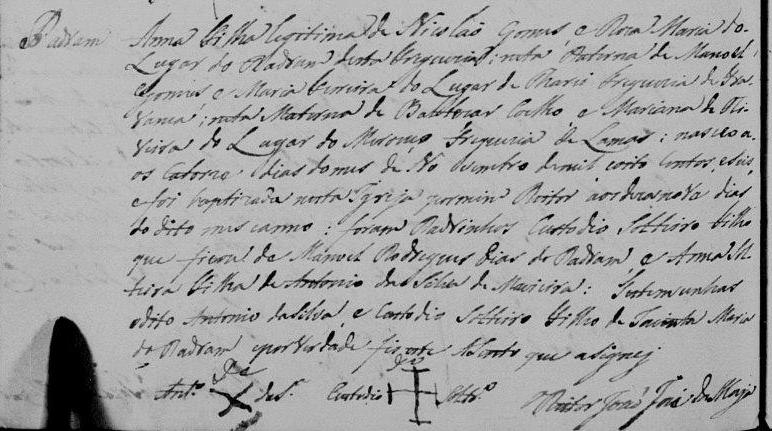 Padram Anna Filha legitima de Nicolao Gomes e Roza Maria do
Lugar do Padram desta Freguezia; neta Paterna de Manoel
Gomes e Maria Ferreira do Lugar de Freguezia de
; neta Materna de Balthezar Coelho e Mariana de Oli
veira do Lugar do Freguezia de Lamas: nasceo a
os Catorze dias do mes de Novembro de mil oito Centos, e seis,
e foi baptizada nesta Igreja por mim Reitor aos dezanove dias
do dito mes e anno: foram Padrinhos Custodio Solteiro Filho
que ficou de Manoel Rodrigues Dias do Padram e Anna
Filha de Antonio da Silva de Moreira: Testemunhas
o dito Antonio da Silva, e Custodio Solteiro Filho de Jacinta Maria
do Padram e por verdade fis este Asento que asignej
Antº De + da Sª Custodio De + Soltrº Reitor João José de